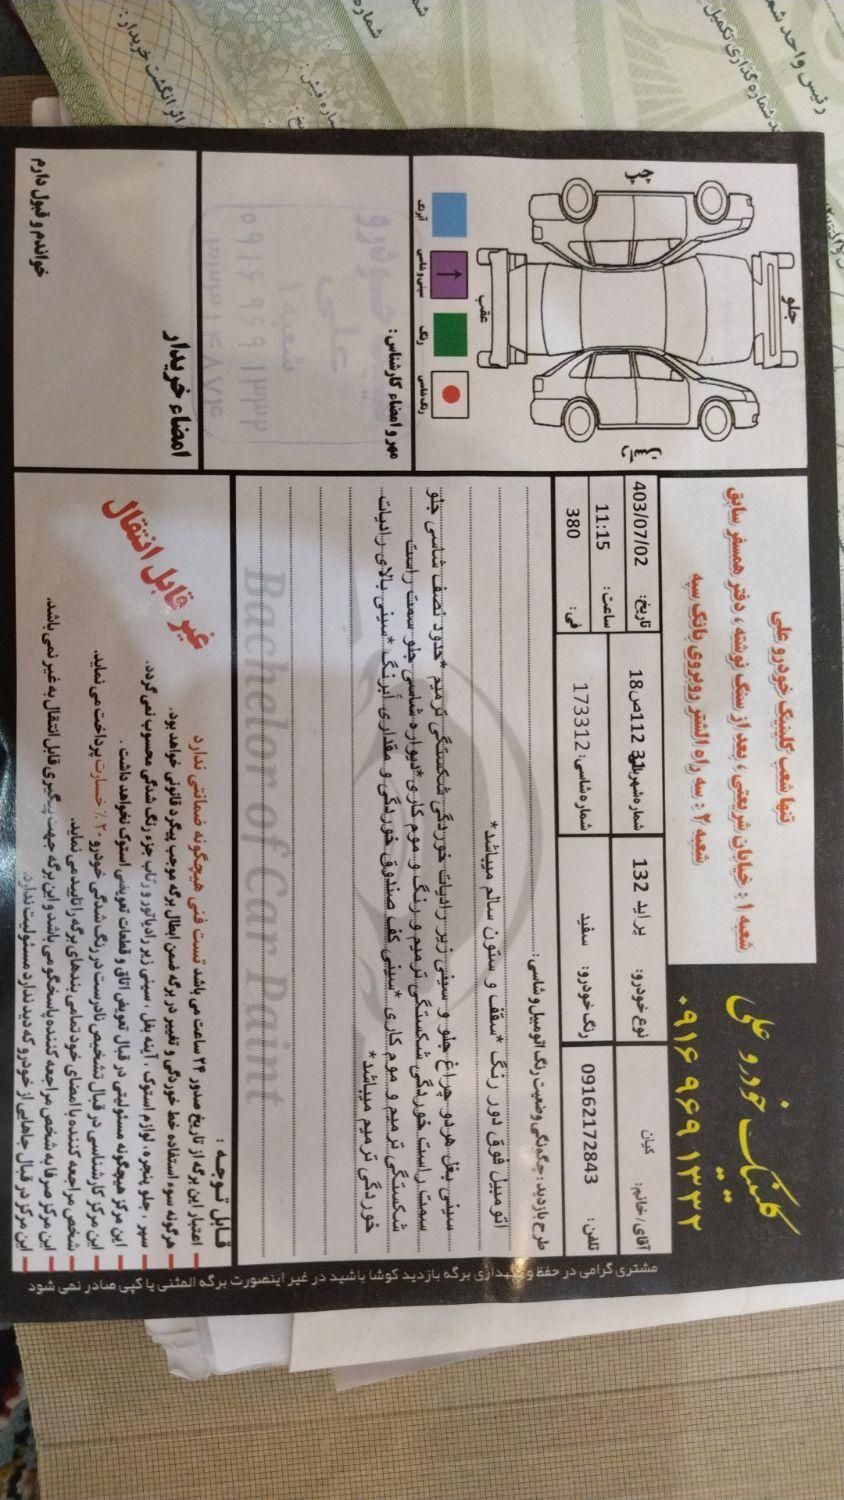 کلینیک خودرو علی
۰۹۱۶ ۹۶۹ ۱۳۳۲
تنها شعب کلینیک خودرو علی
شعبه ۱ : خیابان شریعتی ، بعد از سنگ نوشته ، دفتر همسفر سابق
شعبه ۲ : سه راه الشتر روبروی بانک سپه
آقای/خانم: کیان
نوع خودرو: پراید 132
شماره شهربانی: 31 112ص18
تاریخ: 403/07/02
تلفن: 09162172843
رنگ خودرو: سفید
شماره شاسی: 173312
ساعت: 11:15
فی: 380
طرح بازدید: چگونگی وضعیت رنگ اتومبیل و شاسی:
اتومبیل فوق دور رنگ *سقف و ستون سالم میباشد*
سینی بغل هردو چراغ جلو و سینی زیر رادیات خوردگی شکستگی ترمیم *حدود نصف شاسی جلو
سمت راست خوردگی شکستگی ترمیم و رنگ و موم کاری *دیواره شاسی جلو سمت راست
شکستگی ترمیم و موم کاری *سینی کف صندوق خوردگی و مقداری آبرنگ *سینی بالای رادیات
خوردگی ترمیم میباشد*
Bachelor of Car Paint
جلو
عقب
راست
چپ
آبرنگ
سینی و شاسی
رنگ
رنگ شاسی
مهر و امضاء کارشناس:
خودرو
علی
شعبه ۱
۰۹۱۶ ۹۶۹ ۱۳۳۲
امضاء خریدار
خواندم و قبول دارم
قابل توجه :
اعتبار این برگه از تاریخ صدور ۲۴ ساعت می باشد تست فنی هیچگونه ضمانتی ندارد
هرگونه سوء استفاده خط خوردگی و تغییر در برگه ضمن ابطال برگه موجب پیگرد قانونی خواهد بود.
سپر ، جلو پنجره ، لوازم استوک ، آینه بغل ، سینی زیر رادیاتور و رکاب جزء رنگ شدگی محسوب نمی گردد.
این مرکز هیچگونه مسئولیتی در قبال تعویض اتاق و قطعات تعویضی استوک نخواهد داشت .
این مرکز کارشناسی در قبال تشخیص نادرست در رنگ شدگی خودرو ۲۰٪ خسارت پرداخت می نماید.
شخص مراجعه کننده با امضای خود تمامی بندهای برگه را تایید می نماید.
این مرکز صرفا به شخص مراجعه کننده پاسخگو می باشد و این برگه جهت پیگیری قابل انتقال به غیر نمی باشد.
این مرکز در قبال جاهایی از خودرو که دید ندارد مسئولیت ندارد.
غیر قابل انتقال
مشتری گرامی در حفظ و نگهداری برگه بازدید کوشا باشید در غیر اینصورت برگه المثنی یا کپی صادر نمی شود
رئیس واحد
شماره گذاری تکمیل
اثر انگشت خریدار: